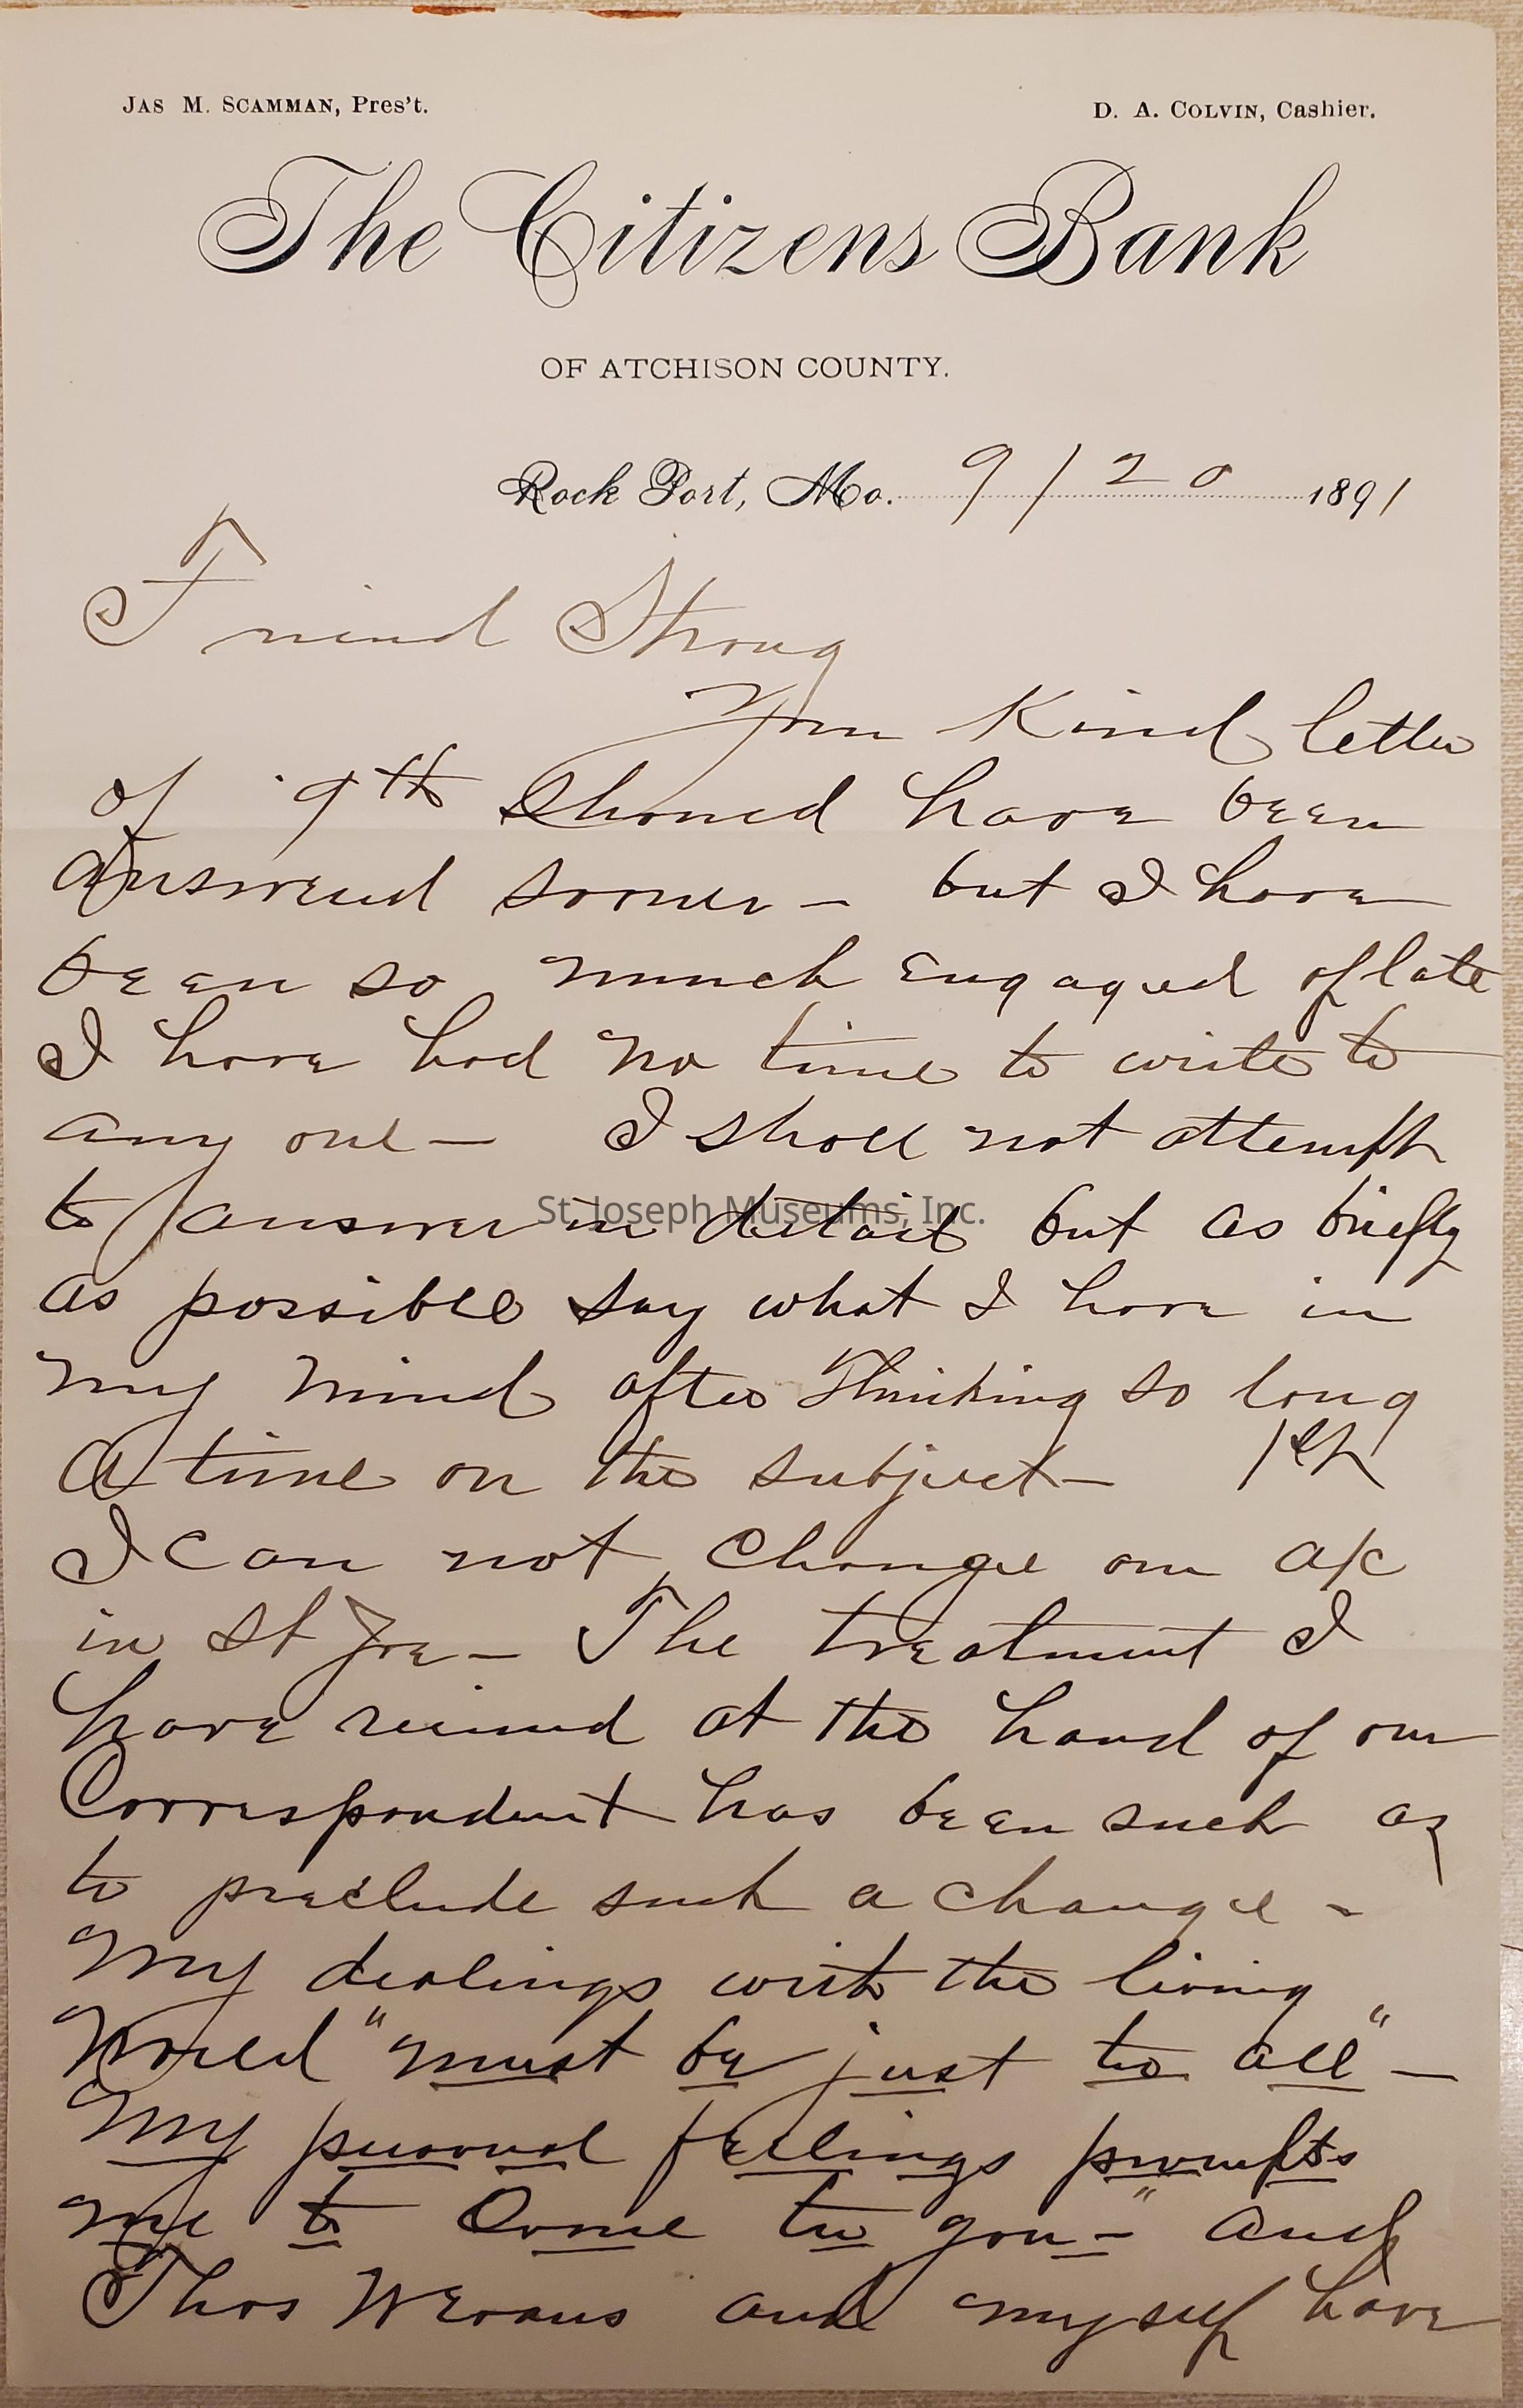 JAS M. SCAMMAN, Pres't.
D. A. COLVIN, Cashier.
The Citizens Bank
OF ATCHISON COUNTY.
Rock Port, Mo. 9/20 1891
Friend Strong
Your Kind letter
of 9th Should have been
answered sooner - but I have
been so much engaged of late
I have had no time to write to
any one - I shall not attempt
to answer in detail but as briefly
as possible say what I have in
my mind after thinking so long
a time on the subject - 1st
I can not change our a/c
in St Joe - The treatment I
have received at the hand of our
Correspondent has been such as
to preclude such a change -
My dealings with the living
World "must be just to all" -
My personal feelings prompts
me to Come to you -" and
Thos W Evans and myself have
St. Joseph Museums, Inc.